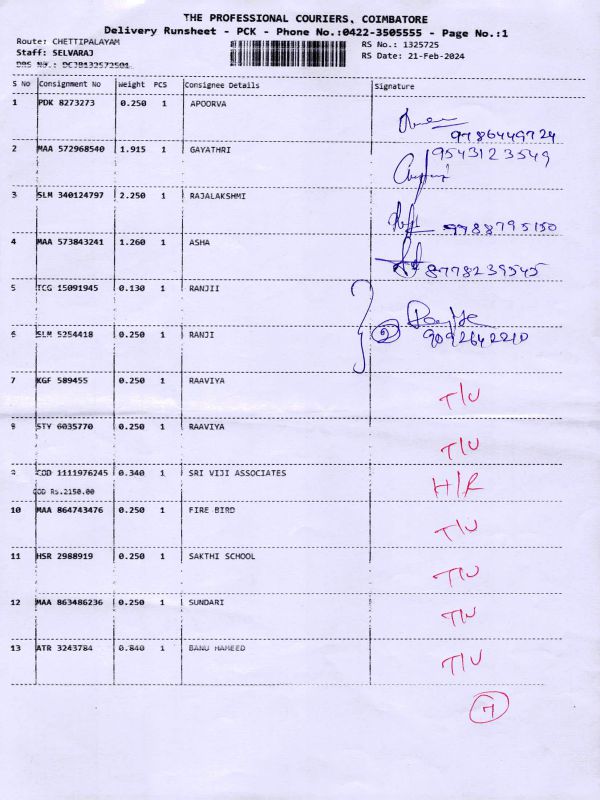 THE PROFESSIONAL COURIERS, COIMBATORE
Delivery Runsheet - PCK - Phone No.:0422-3505555 - Page No.:1
Route: CHETTIPALAYAM RS No.: 1325725
Staff: SELVARAJ RS Date: 21-Feb-2024
DRS No.:
S No Consignment No Weight PCS Consignee Details Signature
1 PDK 8273273 0.250 1 APOORVA
9786449724
2 MAA 572968540 1.915 1 GAYATHRI 9543123549
3 SLM 340124797 2.250 1 RAJALAKSHMI
9788795150
4 MAA 573843241 1.260 1 ASHA
8778239545
5 TCG 15091945 0.130 1 RANJII
6 SLM 5254418 0.250 1 RANJI 2 9092642210
7 KGF 589455 0.250 1 RAAVIYA
T/U
8 STY 6035770 0.250 1 RAAVIYA
T/U
9 COD 1111976245 0.340 1 SRI VIJI ASSOCIATES
H/R
COD Rs.2150.00
10 MAA 864743476 0.250 1 FIRE BIRD
T/U
11 HSR 2988919 0.250 1 SAKTHI SCHOOL
T/U
12 MAA 863486236 0.250 1 SUNDARI
T/U
13 ATR 3243784 0.840 1 BANU HAMEED
T/U
7